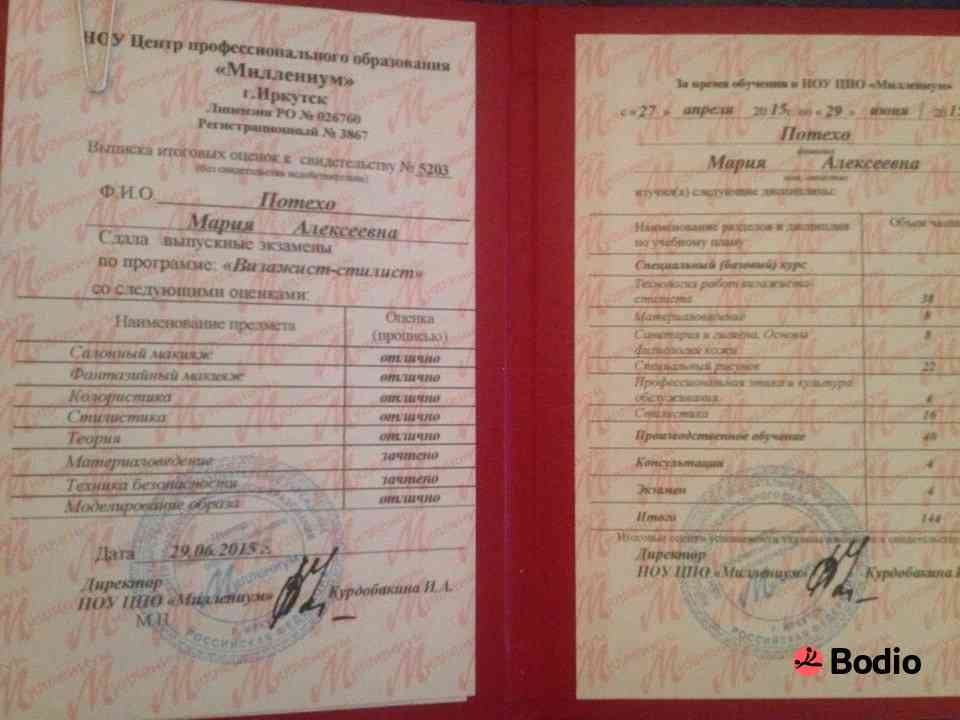 НОУ Центр профессионального образования
«Миллениум»
г.Иркутск
Лицензия РО № 026760
Регистрационный № 3867
Выписка итоговых оценок к свидетельству № 5203
(без свидетельства недействительна)
Ф.И.О. Потехо
Мария Алексеевна
Сдала выпускные экзамены
по программе: «Визажист-стилист»
со следующими оценками:
Наименование предмета Оценка (прописью)
Салонный макияж отлично
Фантазийный макияж отлично
Колористика отлично
Стилистика отлично
Теория отлично
Материаловедение зачтено
Техника безопасности зачтено
Моделирование образа отлично
Дата 29.06.2015 г.
Директор
НОУ ЦПО «Миллениум» Курдобакина И.А.
М.П.
РОССИЙСКАЯ
За время обучения в НОУ ЦПО «Миллениум»
с «27» апреля 2015г. по «29» июня
Потехо
фамилия
Мария Алексеевна
имя, отчество
изучил(а) следующие дисциплины:
Наименование разделов и дисциплин
по учебному плану
Специальный (базовый) курс
Технология работ визажиста-
стилиста 38
Материаловедение 8
Санитария и гигиена. Основы
физиологии кожи 8
Специальный рисунок 22
Профессиональная этика и культура
обслуживания 4
Стилистика 16
Производственное обучение 40
Консультации 4
Экзамен 4
Итого 144
Директор
НОУ ЦПО «Миллениум» Курдобакина
РОССИЙСКАЯ
Bodio